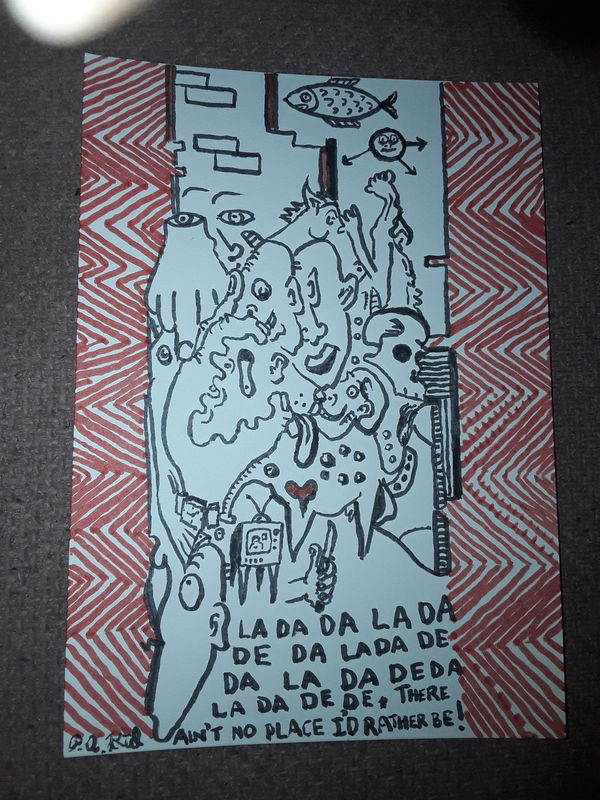 LA DA DA LA DA
DE DA LA DA DE
DA LA DA DE DA
LA DA DE DE. THERE
AIN'T NO PLACE I'D RATHER BE!